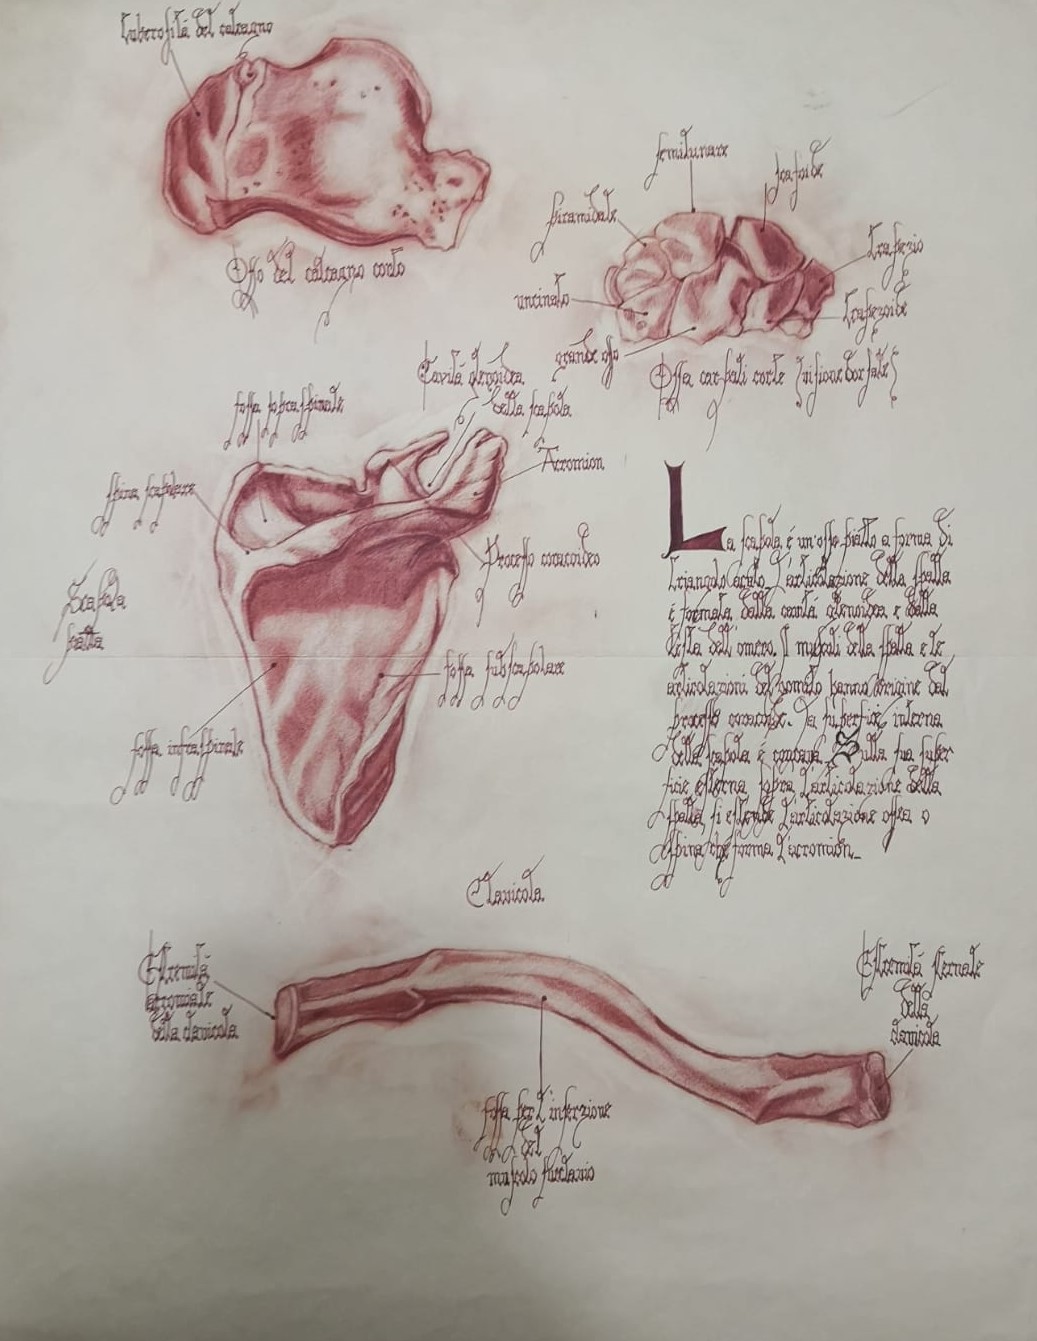 Tuberosità del calcagno
Osso del calcagno corto
semilunare
scafoide
piramidale
trapezio
uncinato
trapezoide
grande osso
Ossa carpali corte (visione dorsale)
Cavità glenoidea
della scapola
fossa sopraspinale
Acromion
spina scapolare
Processo coracoideo
Scapola
piatta
fossa subscapolare
fossa infraspinale
La scapola é un'osso piatto a forma di
triangolo L'articolazione della spalla
é formata dalla cavitá glenoidea e dalla
testa dell'omero. I muscoli della spalla e le
articolazioni del hanno origine dal
processo coracoide. La superficie interna
della scapola é concava. Sulla sua super
ficie esterna sopra L'articolazione della
spalla si estende L'articolazione ossea o
spina che forma L'acromion_
Clavicola
Estremitá
acromiale
della clavicola
Estremitá sternale
della
clavicola
fossa per L'inserzione
del
muscolo succlavio